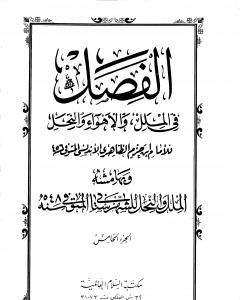 الفصل
في الملل والأهواء والنحل
للامام ابن حزم الظاهري الاندلسي المتوفى
وبهامشه
الملل والنحل للشهرستاني المتوفى سنة
الجزء الخامس
مكتبة السلام العالمية